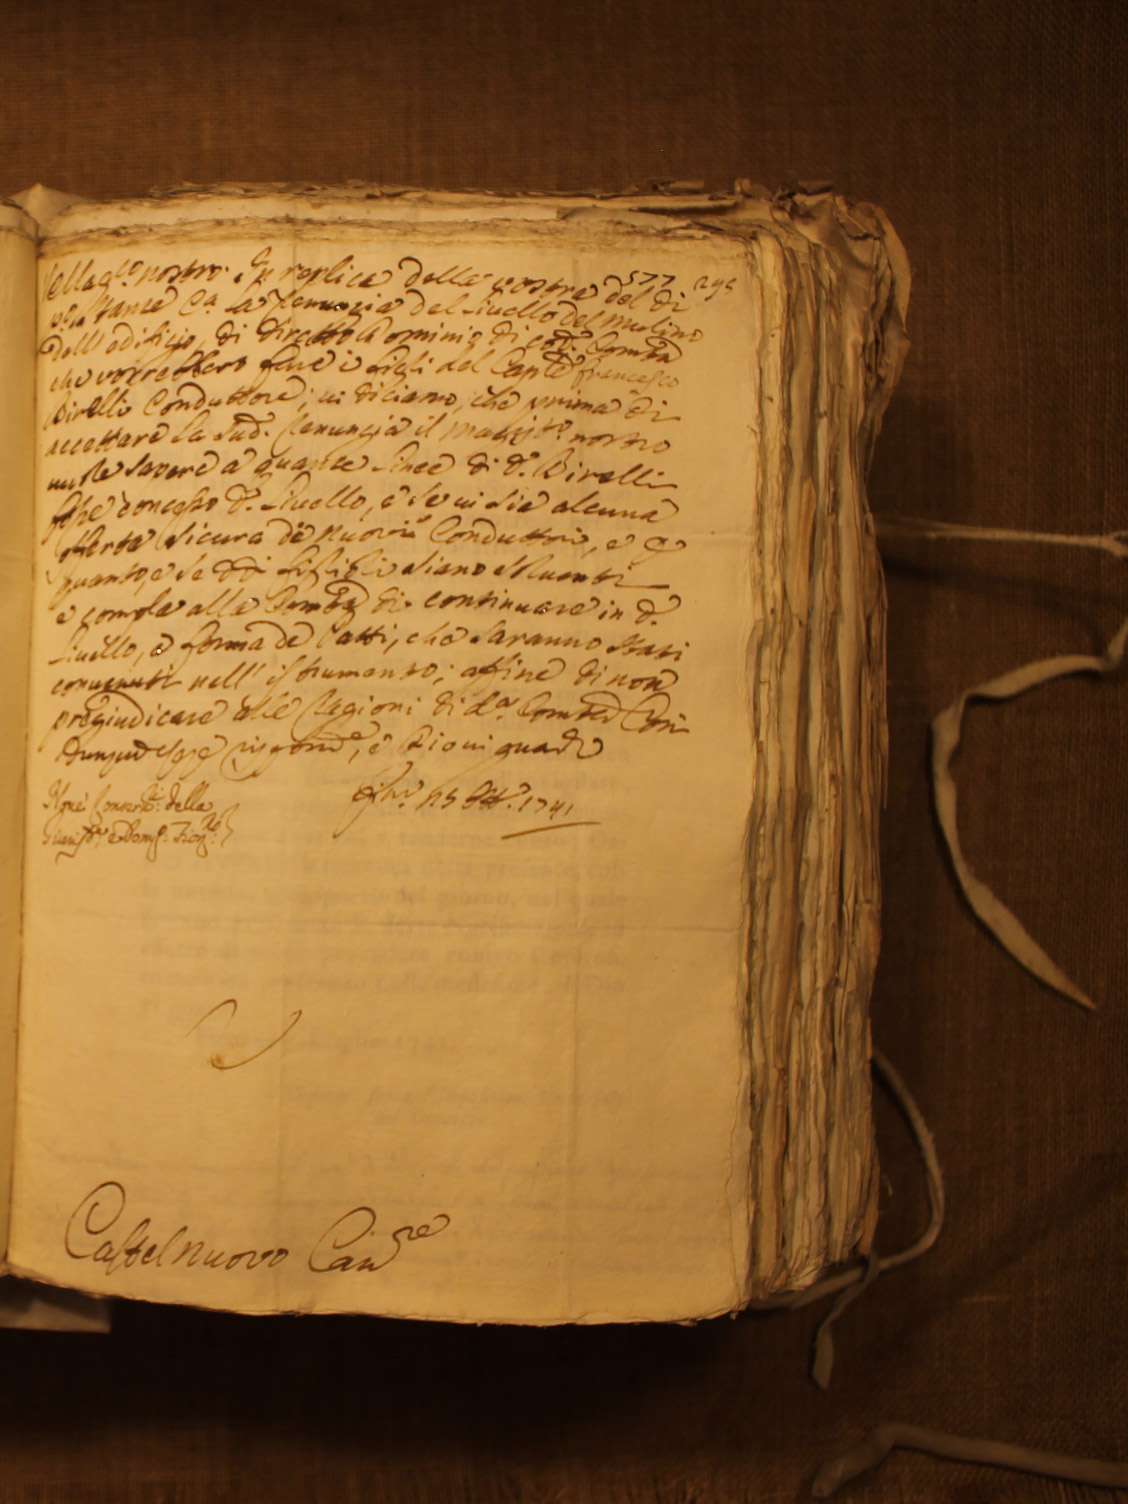 577 295
Mag.to nostro. In replica della vostra del di
stante C.a la Renunzia del Livello del Mulino
dell'edifizio, di diretto Dominio di cod. Com.tà
che vorrebbero fare i figli del Cap.e Francesco
Birelli Conduttore; vi diciamo, che prima di
accettare la sud.a Renunzia il Mag.to nostro
vuole sapere a quante linee di d.o Birelli
fosse concesso d.o Livello, e se vi sia alcuna
offerta sicura di nuovi Conduttori, e p
quanto, e se dd.i figli siano solventi
e compla alla Com.tà di continuare in d.o
Livello, a forma de Patti, che saranno stati
convenuti nell'istrumento; affine di non
pregiudicare alle Ragioni di d.a Com.tà Con
dunque rispond.e, e Dio vi guardi
15 1741
Sig.re Conserv.ri della
Giurisd.e e Dom.o Fior.no
Castelnuovo Can.re